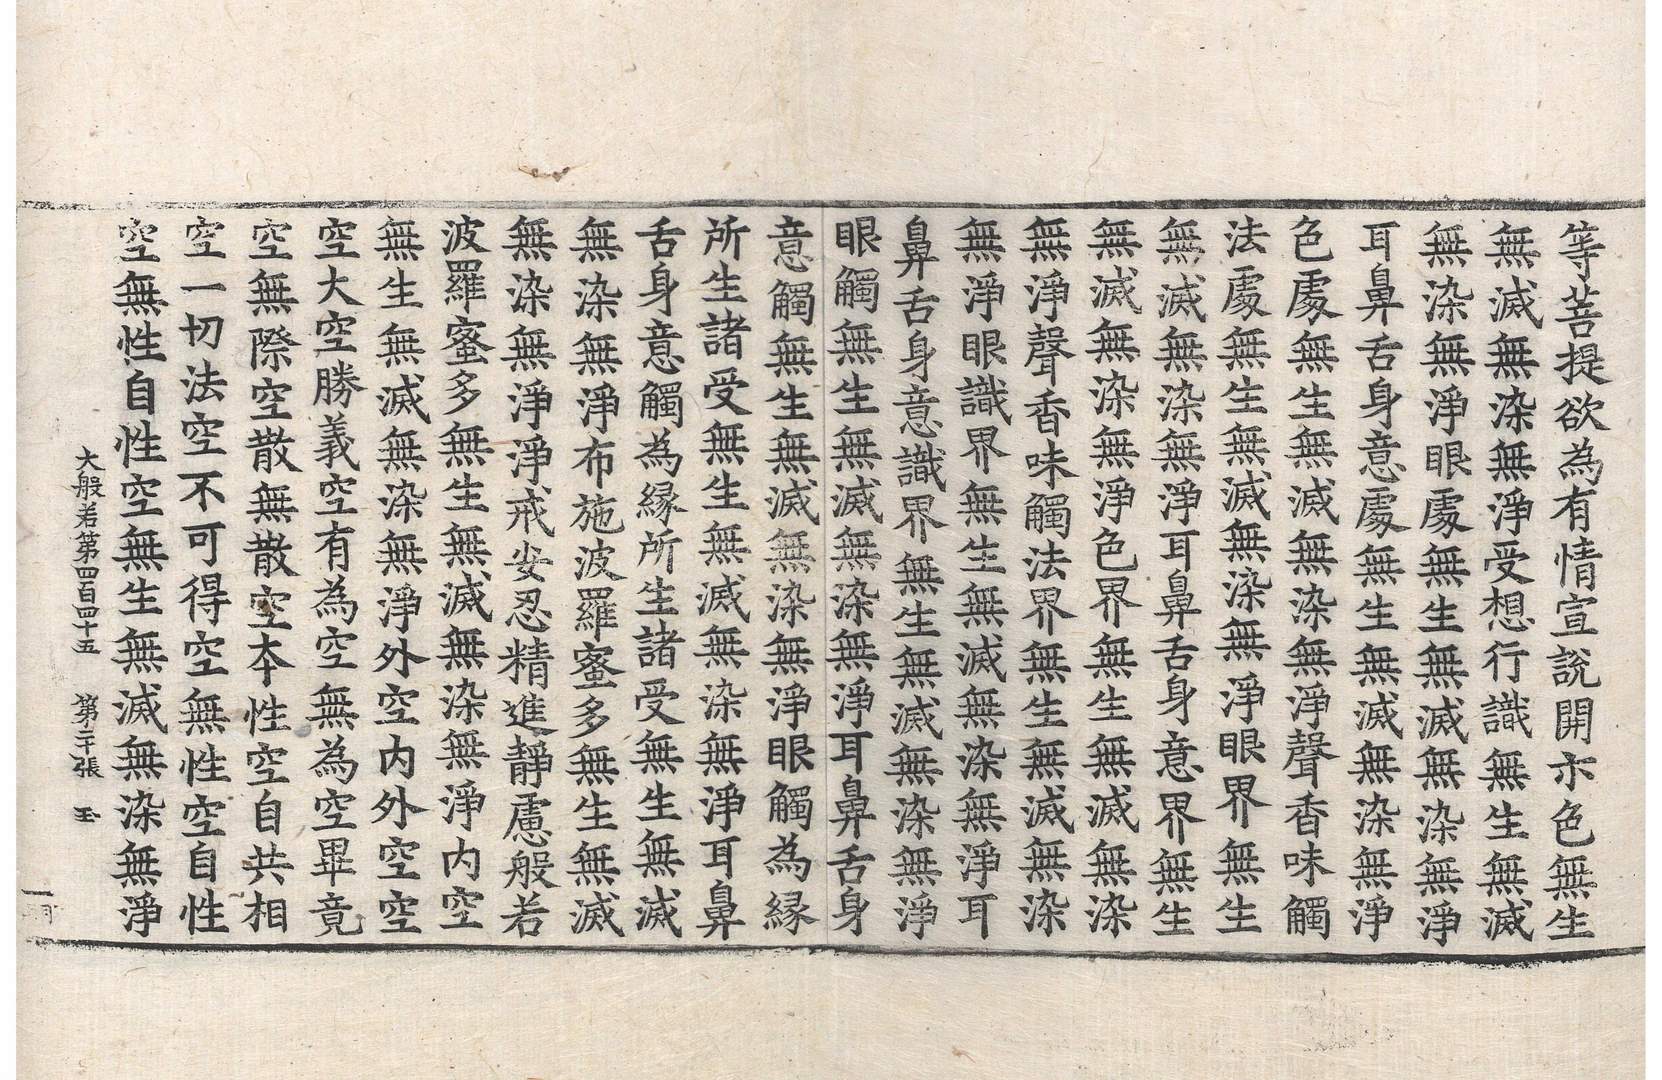 等菩提欲為有情宣說開示色無生
無滅無染無淨受想行識無生無滅
無染無淨眼處無生無滅無染無淨
耳鼻舌身意處無生無滅無染無淨
色處無生無滅無染無淨聲香味觸
法處無生無滅無染無淨眼界無生
無滅無染無淨耳鼻舌身意界無生
無滅無染無淨色界無生無滅無染
無淨聲香味觸法界無生無滅無染
無淨眼識界無生無滅無染無淨耳
鼻舌身意識界無生無滅無染無淨
眼觸無生無滅無染無淨耳鼻舌身
意觸無生無滅無染無淨眼觸為緣
所生諸受無生無滅無染無淨耳鼻
舌身意觸為緣所生諸受無生無滅
無染無淨布施波羅蜜多無生無滅
無染無淨淨戒安忍精進靜慮般若
波羅蜜多無生無滅無染無淨內空
無生無滅無染無淨外空內外空空
空大空勝義空有為空無為空畢竟
空無際空散無散空本性空自共相
空一切法空不可得空無性空自性
空無性自性空無生無滅無染無淨
大般若第四百四十五 第二十張 玉